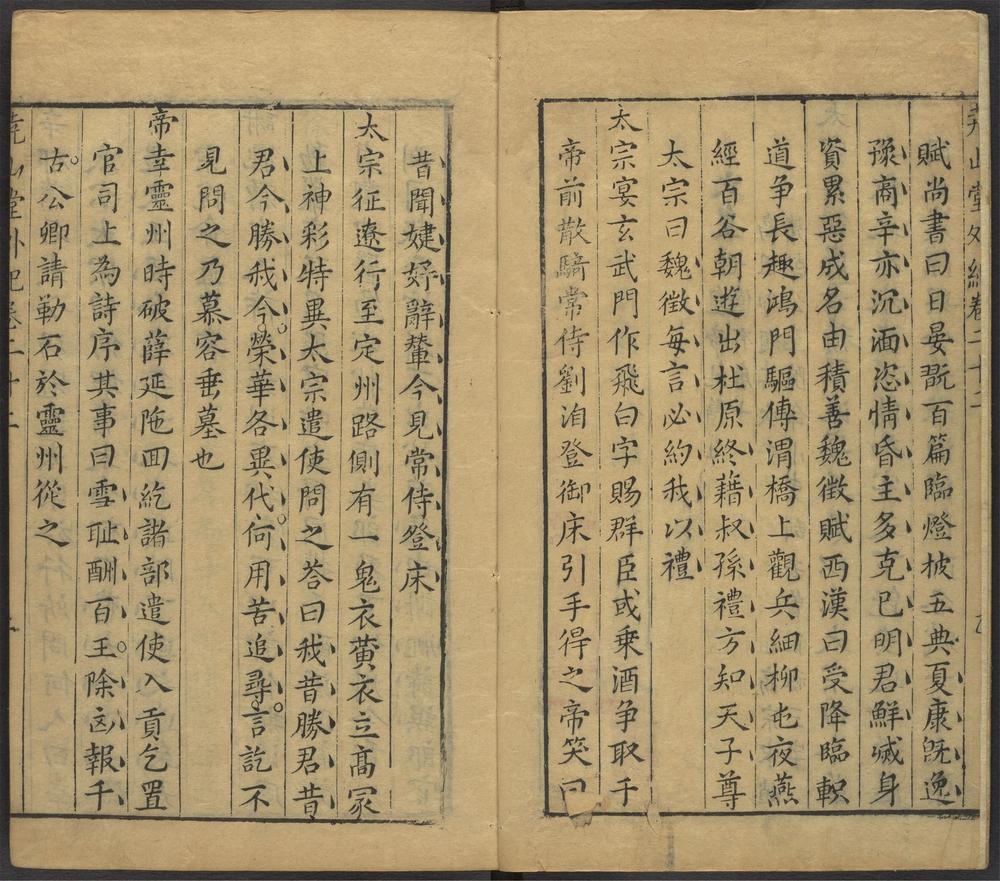 堯山堂外紀卷二十二
賦尚書曰日晏翫百篇臨燈披五典夏康既逸
豫商辛亦沉湎恣情昏主多克己明君鮮滅身
資累惡成名由積善魏徵賦西漢曰受降臨軹
道爭長趣鴻門驅傳渭橋上觀兵細柳屯夜燕
經百谷朝遊出杜原終藉叔孫禮方知天子尊
太宗曰魏徵每言必約我以禮
太宗宴玄武門作飛白字賜群臣或乗酒爭取手
帝前散騎常侍劉洎登御床引手得之帝笑曰
昔聞婕妤辭輦今見常侍登床
太宗征遼行至定州路側有一鬼衣黃衣立高冢
上神彩特異太宗遣使問之荅曰我昔勝君昔
君今勝我今榮華各異代何用苦追尋言訖不
見問之乃慕容垂墓也
帝幸靈州時破薛延陁囬紇諸部遣使入貢乞置
官司上為詩序其事曰雪耻酬百王除凶報千
古公卿請勒石於靈州從之
堯山堂外紀卷二十二